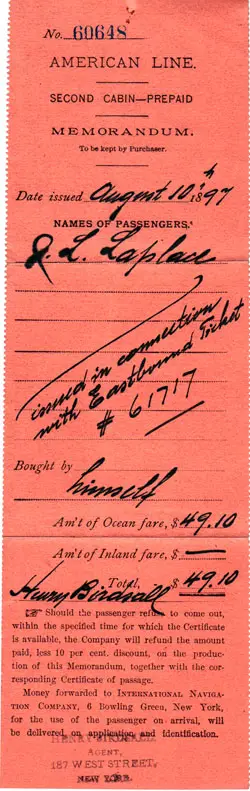 No. 60648
AMERICAN LINE.
SECOND CABIN—PREPAID
MEMORANDUM.
To be kept by Purchaser.
Date issued August 10th 1897
NAMES OF PASSENGERS.
J. L. Laplace
issued in connection
with Eastbound Ticket
# 61717
Bought by himself
Am't of Ocean fare, $ 49.10
Am't of Inland fare, $ —
Henry Birdsall Total, $ 49.10
☞ Should the passenger refuse to come out,
within the specified time for which the Certificate
is available, the Company will refund the amount
paid, less 10 per cent. discount, on the produc-
tion of this Memorandum, together with the cor-
responding Certificate of passage.
Money forwarded to INTERNATIONAL NAVIGA-
TION COMPANY, 6 Bowling Green, New York,
for the use of the passenger on arrival, will
be delivered on application and identification.
HENRY BIRDSALL
AGENT,
187 WEST STREET,
NEW YORK.